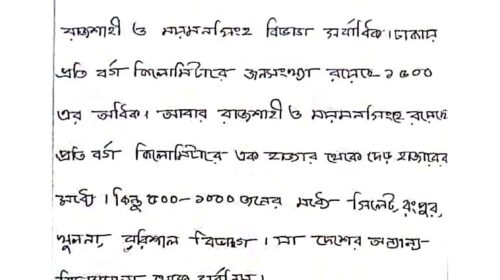 রাজশাহী ও ময়মনসিংহ বিভাগ সর্বাধিক। ঢাকায়
প্রতি বর্গ কিলোমিটারে জনসংখ্যা রয়েছে ১৫০০
এর অধিক। আবার রাজশাহী ও ময়মনসিংহে রয়েছে
প্রতি বর্গ কিলোমিটারে এক হাজার থেকে দেড় হাজারের
মধ্যে। কিন্তু ৫০০-১০০০ জনের মধ্যে সিলেট, রংপুর,
খুলনা, বরিশাল বিভাগে। যা দেশের অন্যান্য